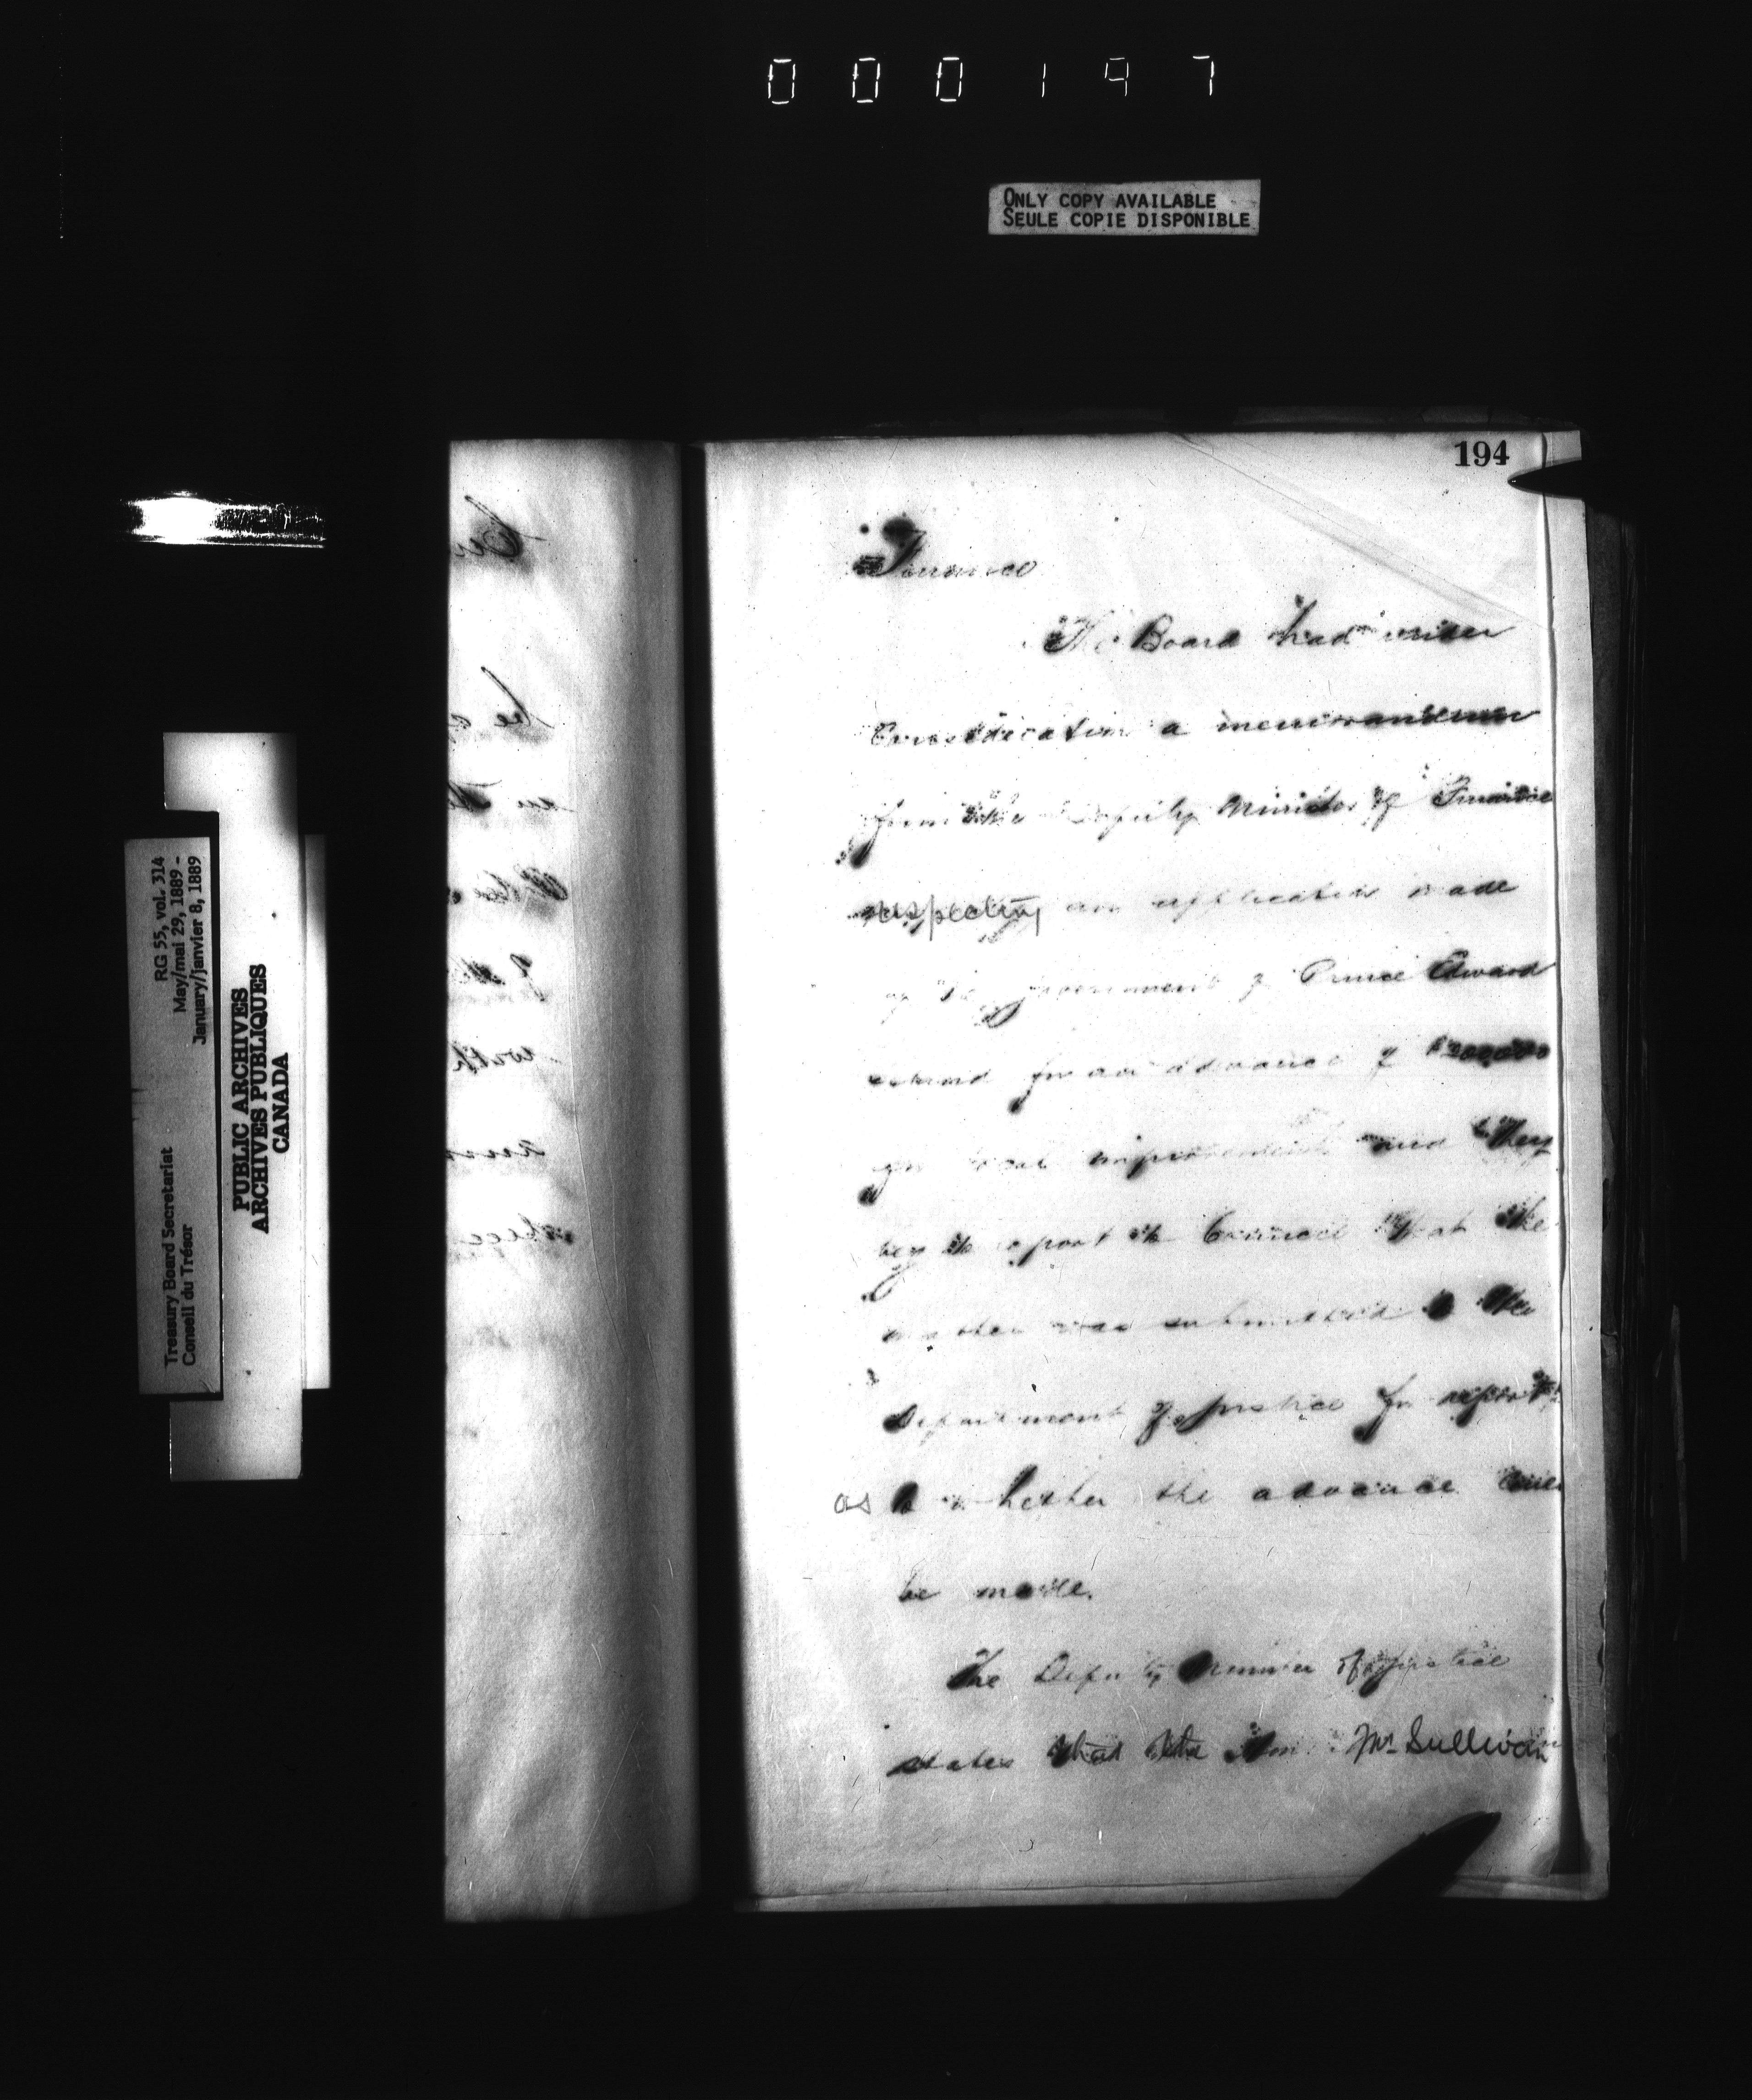 000197
ONLY COPY AVAILABLE
SEULE COPIE DISPONIBLE
194
Finance
The Board had under
Consideration a memorandum
from the Deputy Minister of Finance
respecting an application made
by the government of Prince Edward
Island for an advance of
for local improvements and they
beg to report to Council that the
matter was submitted to the
Department of Justice for report
as to whether the advance can
be made.
The Deputy Minister of Justice
states that the Hon. Mr Sullivan
RG 55, vol. 314
May/mai 29, 1889 -
January/janvier 8, 1889
Treasury Board Secretariat
Conseil du Trésor
PUBLIC ARCHIVES
ARCHIVES PUBLIQUES
CANADA